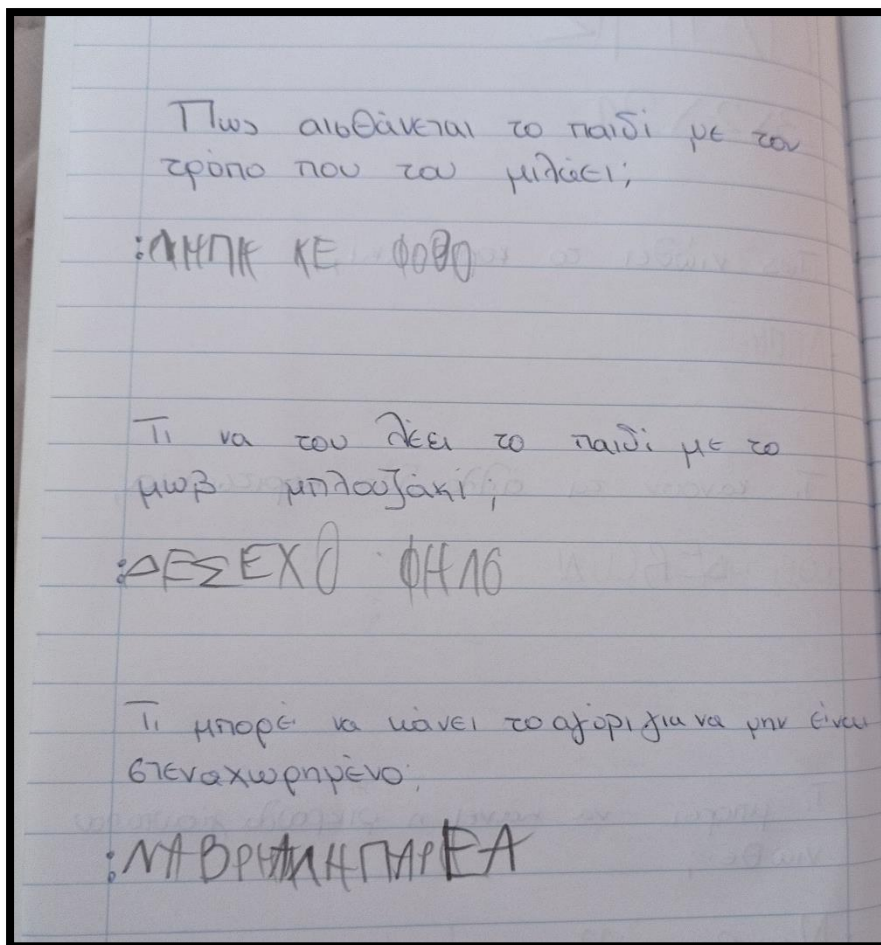 Πως αισθάνεται το παιδί με τον
τρόπο που του μιλάει;
:ΛΗΠΗ ΚΕ ΦΟΒΟ
Τι να του λέει το παιδί με το
μωβ μπλουζάκι;
:ΔΕΣΕΧΟ ΦΗΛΟ
Τι μπορέι να κάνει το αγόρι για να μην είναι
στεναχωρημένο;
:ΝΑ ΒΡΗ ΑΛΗ ΠΑΡΕΑ